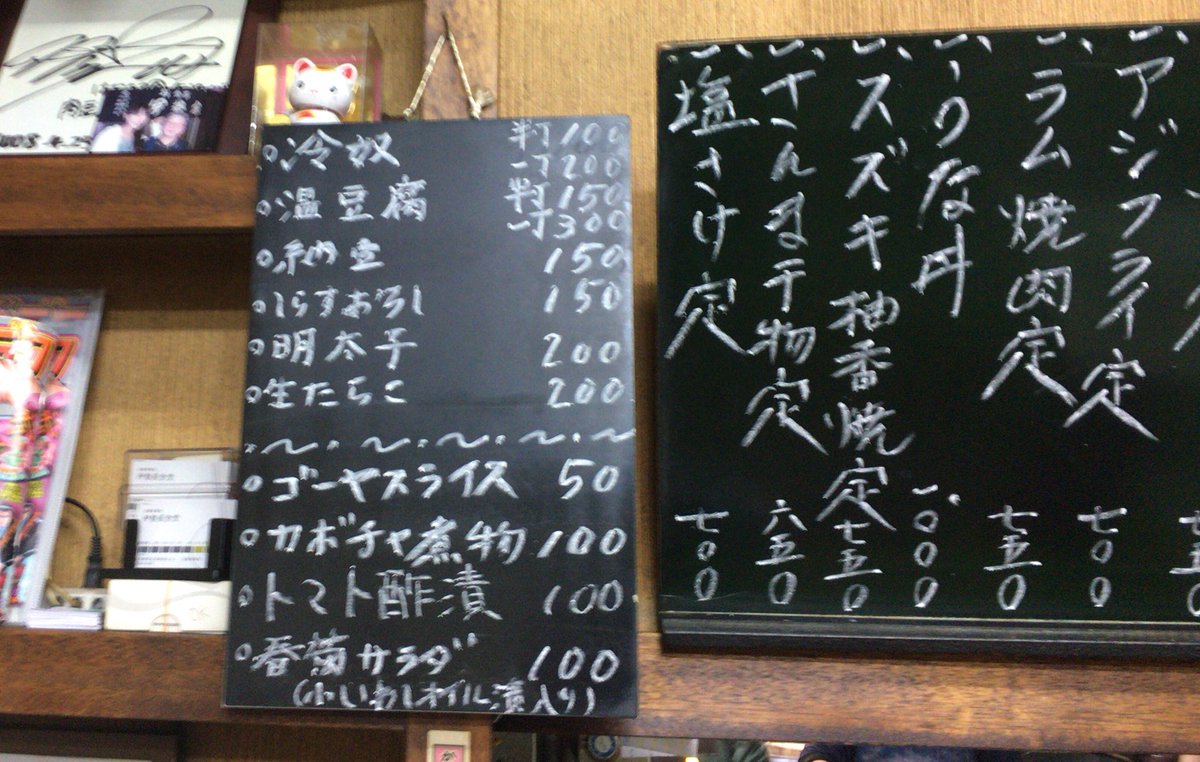 冷奴 半丁 100
一丁 200
温豆腐 半丁 150
一丁 300
納豆 150
しらすおろし 150
明太子 200
生たらこ 200
ゴーヤスライス 50
カボチャ煮物 100
トマト酢漬 100
春菊サラダ 100
(小いわしオイル漬入り)
アジフライ定 七〇〇
ラム焼肉定 七五〇
うな丼 一、〇〇〇
スズキ柚香焼定 七五〇
さんま干物定 六五〇
塩さけ定 七〇〇